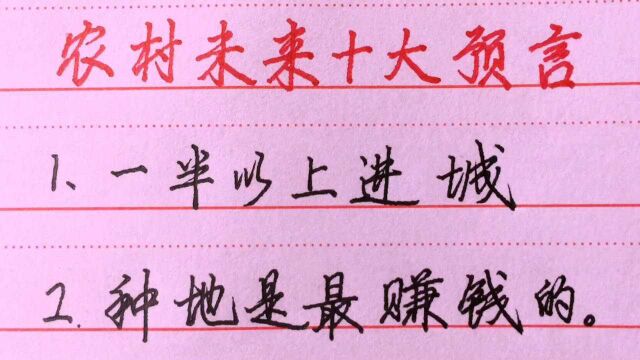 农村未来十大预言
1、一半以上进城
2.种地是最赚钱的。